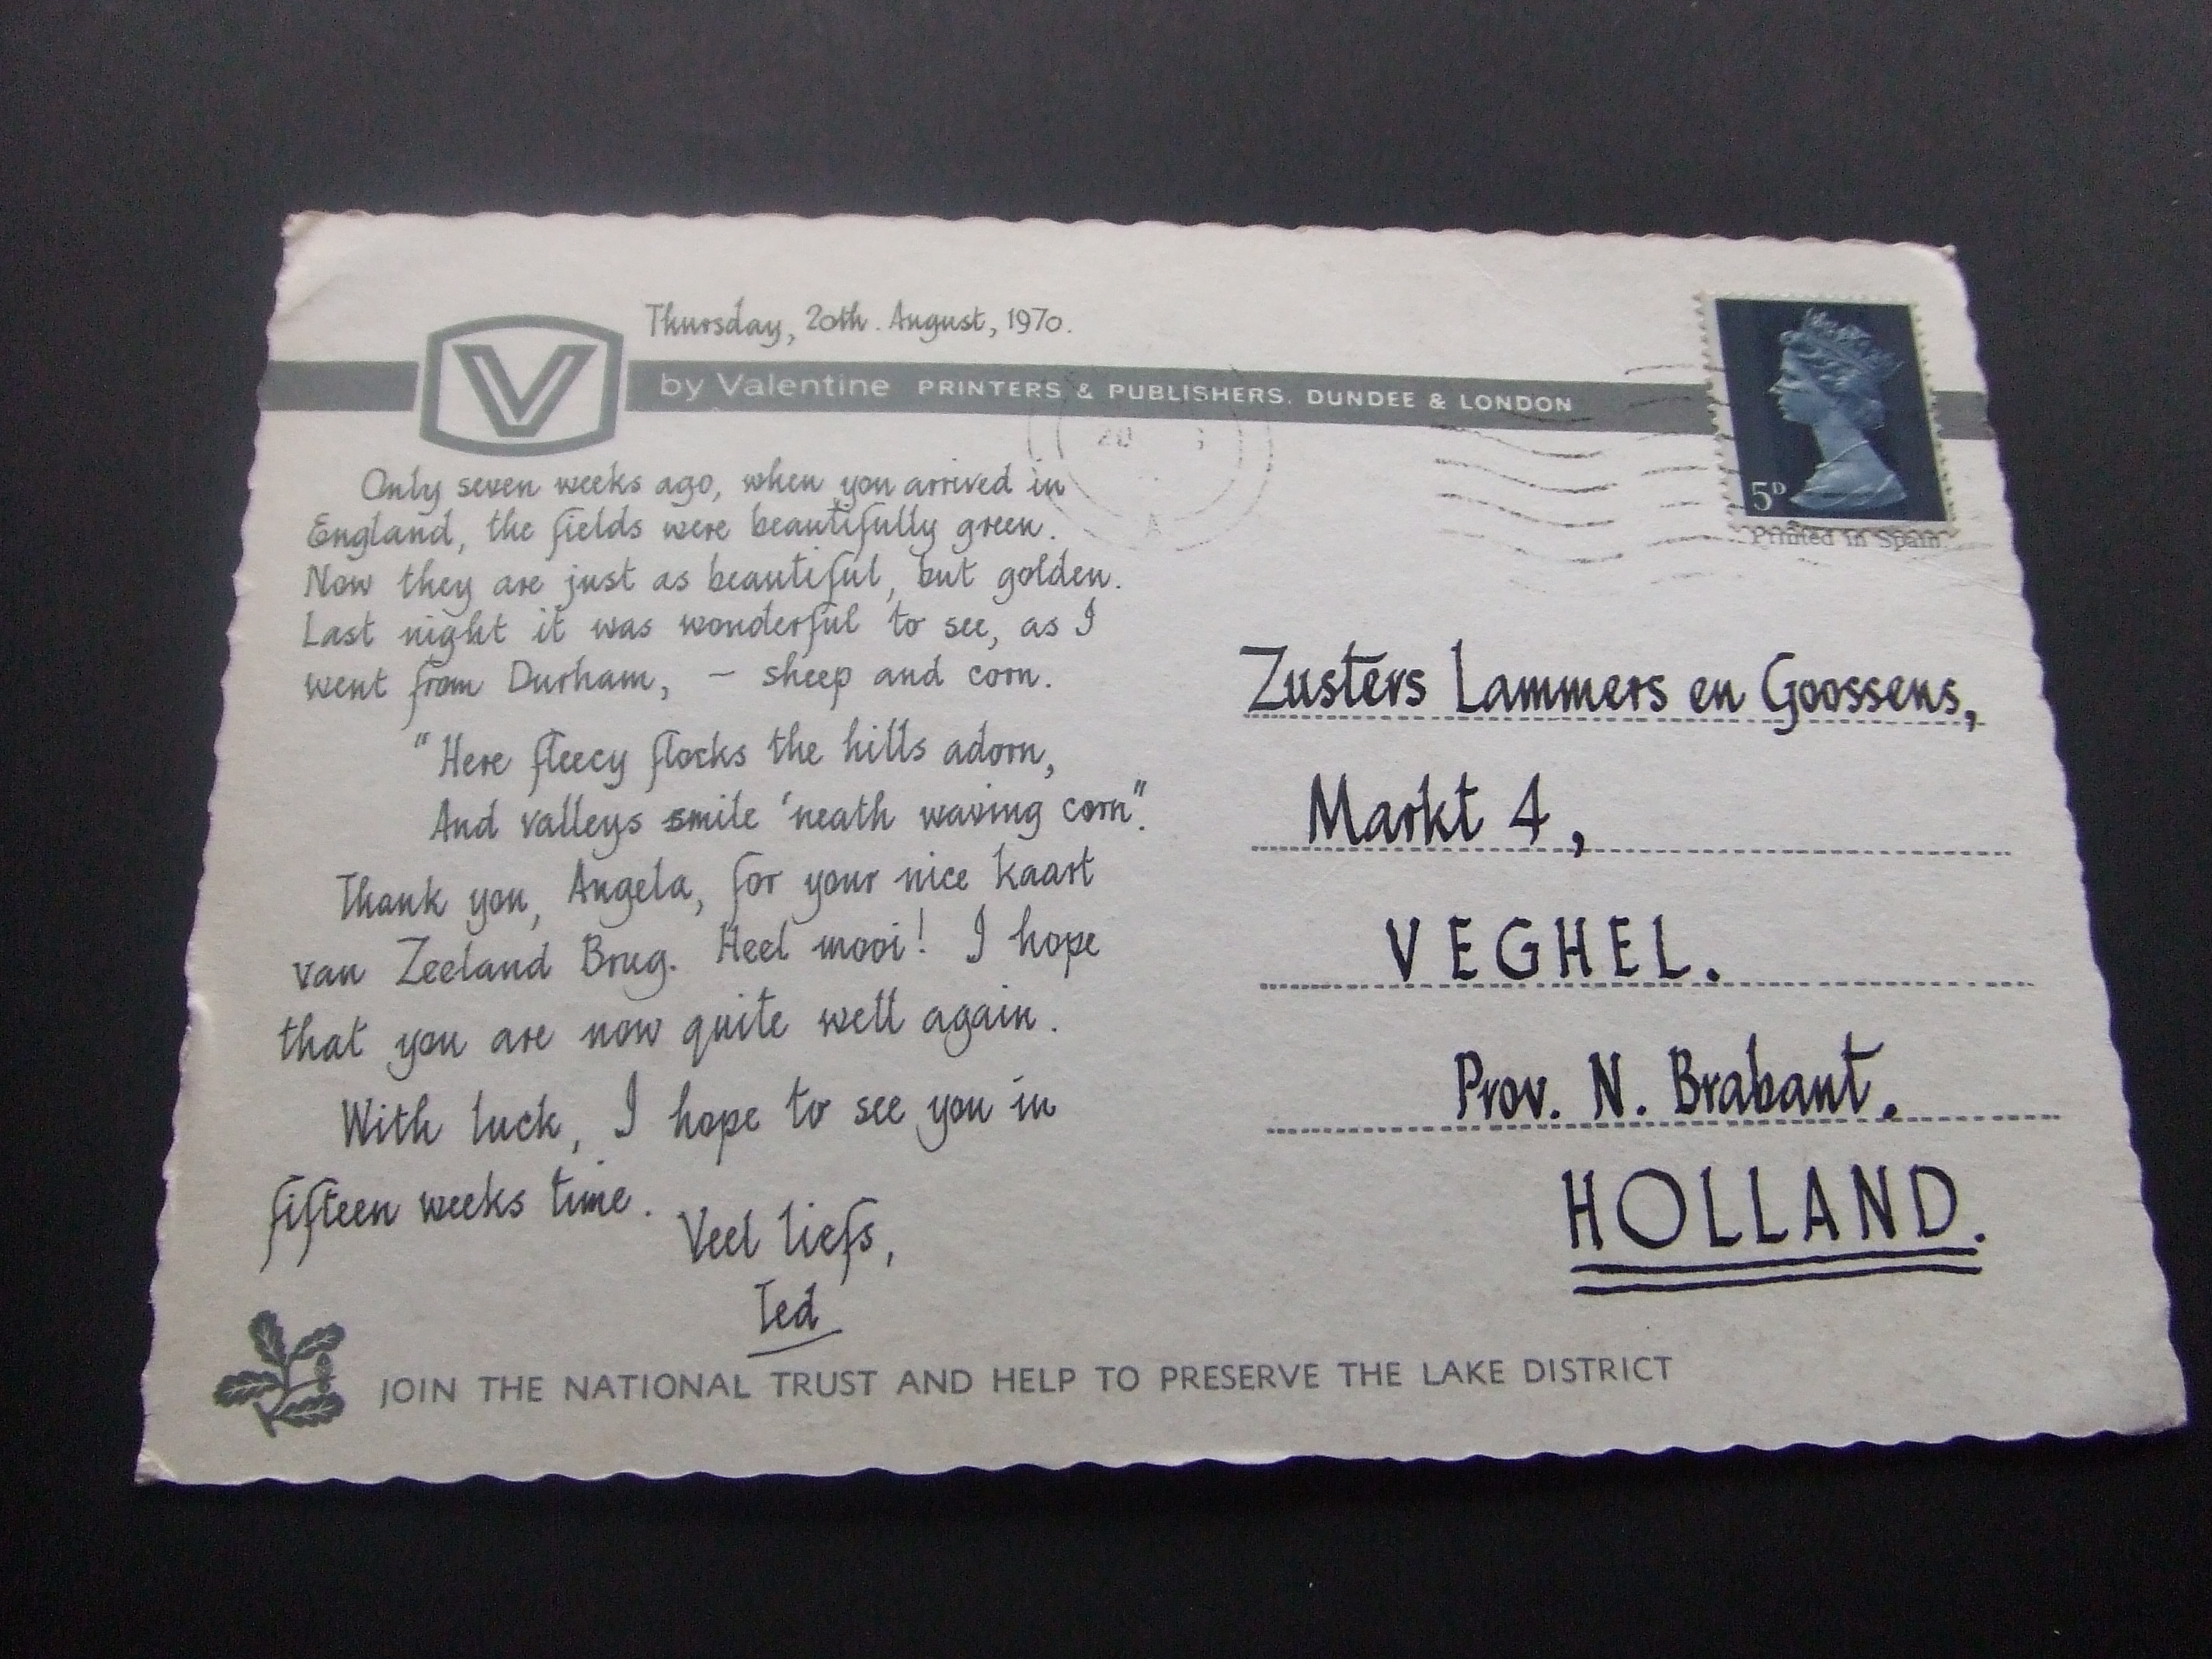 Thursday, 20th. August, 1970.
V by Valentine PRINTERS & PUBLISHERS. DUNDEE & LONDON
20
5D
Printed in Spain
Only seven weeks ago, when you arrived in
England, the fields were beautifully green.
Now they are just as beautiful, but golden.
Last night it was wonderful to see, as I
went from Durham, – sheep and corn.
"Here fleecy flocks the hills adorn,
And valleys smile 'neath waving corn".
Thank you, Angela, for your nice kaart
van Zeeland Brug. Heel mooi! I hope
that you are now quite well again.
With luck, I hope to see you in
fifteen weeks time.
Veel liefs,
Ted
Zusters Lammers en Goossens,
Markt 4,
VEGHEL.
Prov. N. Brabant.
HOLLAND.
JOIN THE NATIONAL TRUST AND HELP TO PRESERVE THE LAKE DISTRICT